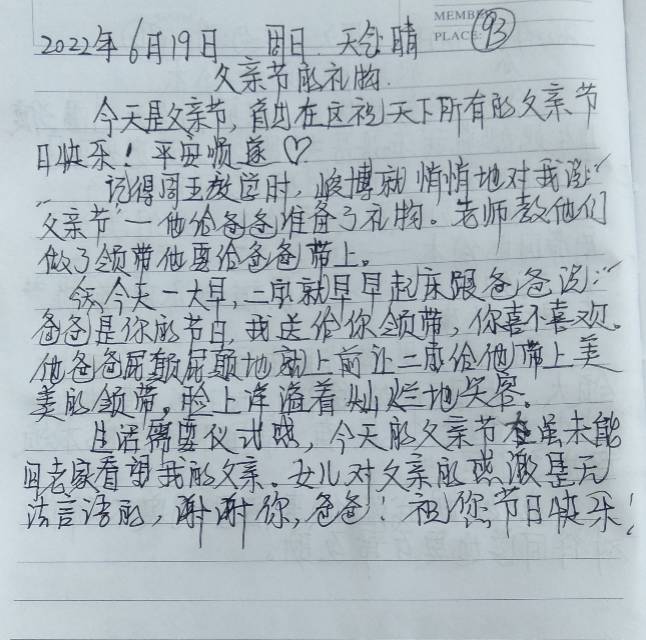 MEMBE
PLACE: 93
2022年6月19日 周日 天气晴
父亲节的礼物.
今天是父亲节,首先在这祝天下所有的父亲节
日快乐!平安顺遂♡
记得周五放学时,峻博就悄悄地对我说:“
父亲节”一他给爸爸准备了礼物。老师教他们
做了领带他要给爸爸带上。
今天一大早,二宝就早早起床跟爸爸说:“
爸爸是你的节日,我送给你领带,你喜不喜欢。
他爸爸屁颠屁颠地就上前让二宝给他带上美
美的领带,脸上洋溢着灿烂地笑容。
生活需要仪式感,今天的父亲节虽未能
回老家看望我的父亲。女儿对父亲的感激是无
法言语的,谢谢你,爸爸!祝您节日快乐!